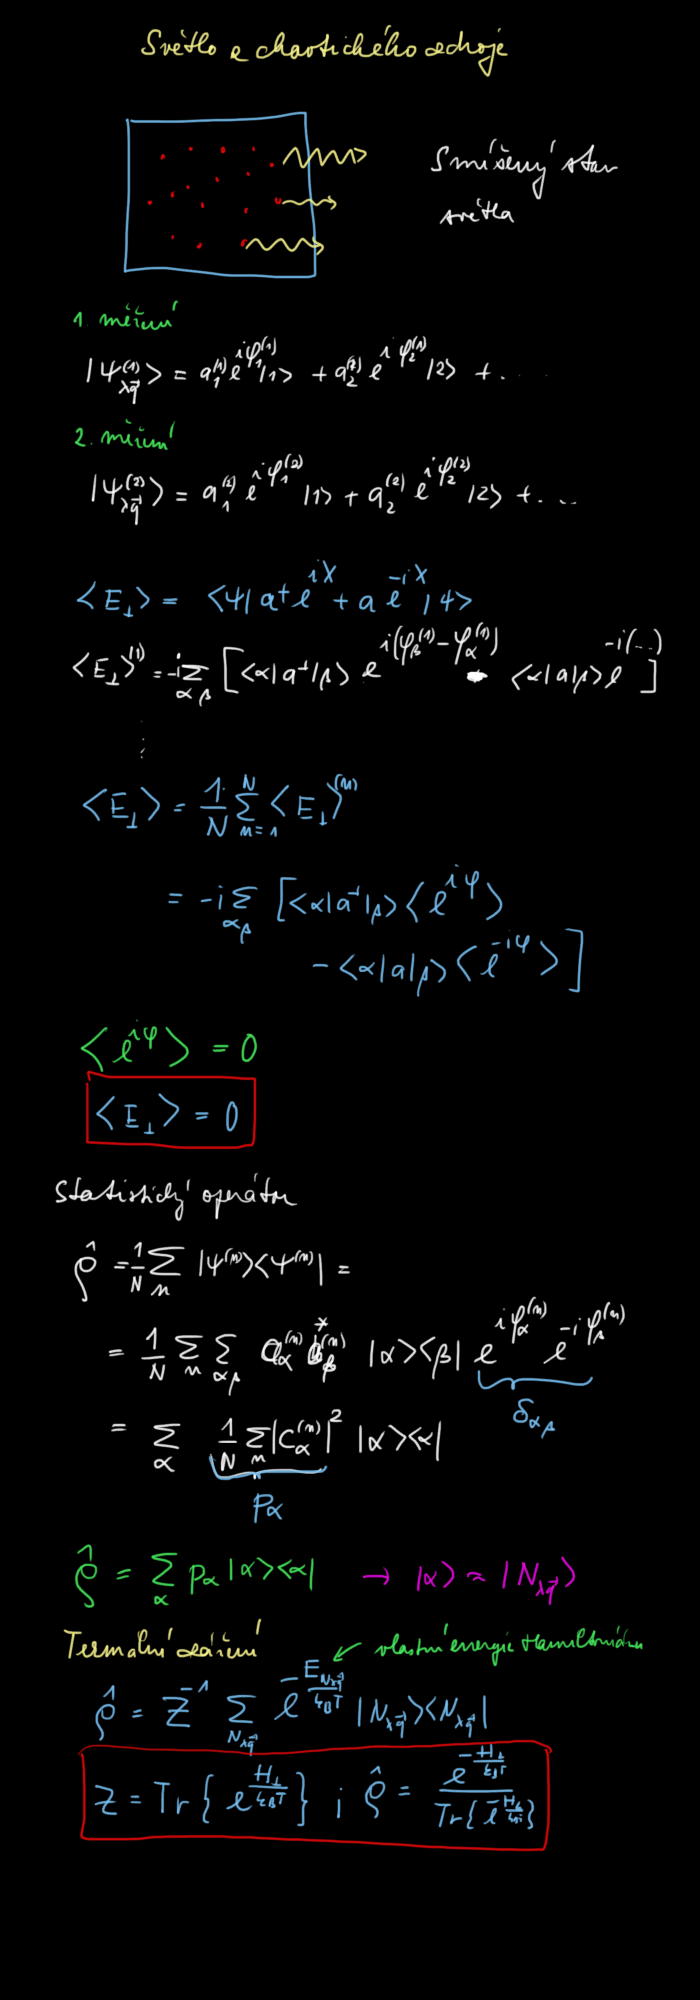 Světlo z chaotického zdroje
Smíšený stav
světla
1. měření
|ψ_{λq⃗}^{(1)}> = a_1^{(1)} e^{iφ_1^{(1)}} |1> + a_2^{(1)} e^{iφ_2^{(1)}} |2> + ....
2. měření
|ψ_{λq⃗}^{(2)}> = a_1^{(2)} e^{iφ_1^{(2)}} |1> + a_2^{(2)} e^{iφ_2^{(2)}} |2> + ....
<E_⊥> = <ψ| a^+ e^{iχ} + a e^{-iχ} |ψ>
<E_⊥>^{(1)} = -i Σ_{αβ} [<α|a^+|β> e^{i(φ_β^{(1)} - φ_α^{(1)})} - <α|a|β> e^{-i(...)}]
⋮
<E_⊥> = 1/N Σ_{n=1}^{N} <E_⊥>^{(n)}
= -i Σ_{αβ} [<α|a^+|β> <e^{iφ}>
- <α|a|β> <e^{-iφ}>]
<e^{iφ}> = 0
<E_⊥> = 0
Statistický operátor
ρ̂ = 1/N Σ_n |ψ^{(n)}><ψ^{(n)}| =
= 1/N Σ_n Σ_{αβ} a_α^{(n)} a_β^{*(n)} |α><β| e^{iφ_α^{(n)}} e^{-iφ_β^{(n)}}
δ_{αβ}
= Σ_α 1/N Σ_n |c_α^{(n)}|^2 |α><α|
p_α
ρ̂ = Σ_α p_α |α><α| → |α> ≈ |N_{λq⃗}>
Termální záření
vlastní energie Hamiltoniánu
ρ̂ = Z^{-1} Σ_{N_{λq⃗}} e^{-E_{N_{λq⃗}}/k_BT} |N_{λq⃗}><N_{λq⃗}|
Z = Tr{ e^{H_⊥/k_BT} } ; ρ̂ = e^{-H_⊥/k_BT} / Tr{ e^{-H_⊥/k_BT} }